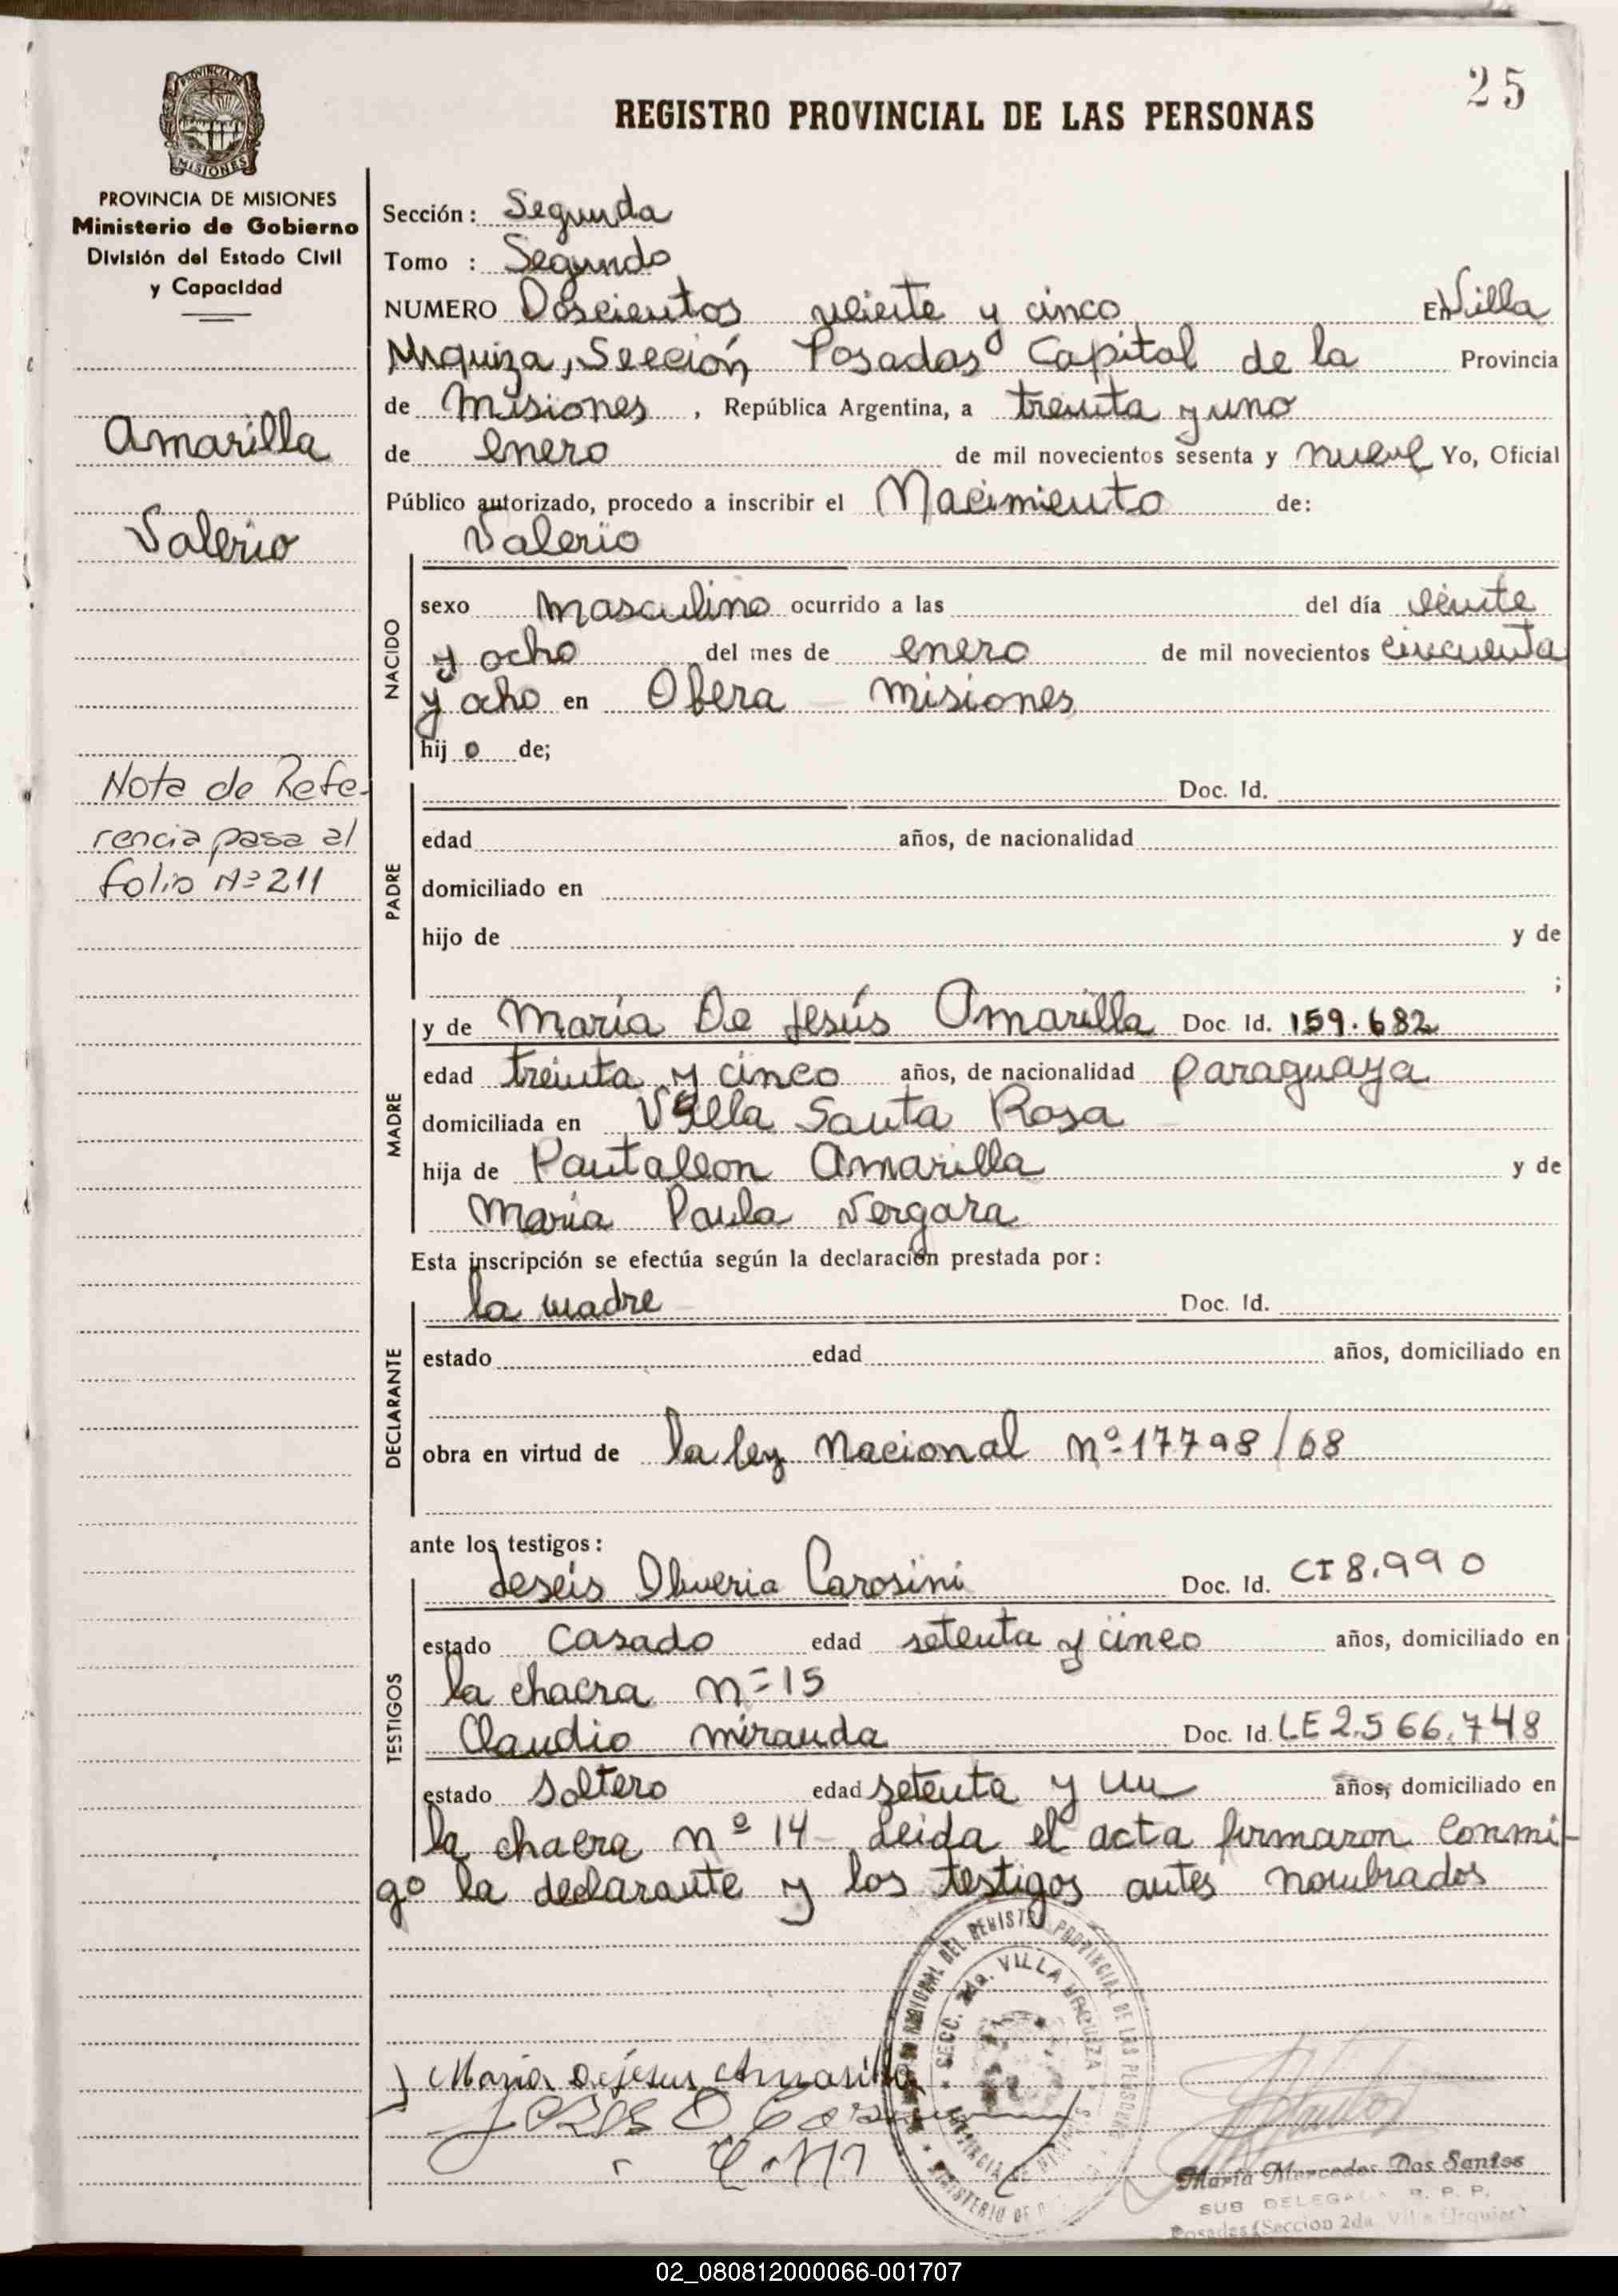 25
REGISTRO PROVINCIAL DE LAS PERSONAS
PROVINCIA DE
MISIONES
PROVINCIA DE MISIONES
Ministerio de Gobierno
División del Estado Civil
y Capacidad
Amarilla
Valerio
Nota de Refe-
rencia pasa al
folio Nº 211
Sección: Segunda
Tomo : Segundo
NUMERO Doscientos veiente y cinco EN Villa
Urquiza, Sección Posadas Capital de la Provincia
de Misiones, República Argentina, a treinta y uno
de enero de mil novecientos sesenta y nueve Yo, Oficial
Público autorizado, procedo a inscribir el Nacimiento de:
Valerio
NACIDO
sexo masculino ocurrido a las del día veinte
y ocho del mes de enero de mil novecientos cincuenta
y ocho en Obera - misiones
hij o de;
PADRE
Doc. Id.
edad años, de nacionalidad
domiciliado en
hijo de y de
;
MADRE
y de María De Jesús Amarilla Doc. Id. 159.682
edad treinta y cinco años, de nacionalidad paraguaya
domiciliada en Villa Santa Rosa
hija de Pantaleon Amarilla y de
María Paula Vergara
Esta inscripción se efectúa según la declaración prestada por:
DECLARANTE
la madre Doc. Id.
estado edad años, domiciliado en
obra en virtud de la ley Nacional nº 17798/68
ante los testigos:
TESTIGOS
Carosini Doc. Id. CI 8.990
estado Casado edad setenta y cinco años, domiciliado en
la chacra nº 15
Claudio miranda Doc. Id. LE 2.566.748
estado Soltero edad setenta y un años, domiciliado en
la chacra nº 14 - Leida el acta firmaron conmi-
go la declarante y los testigos antes nombrados
REGIONAL DEL REGISTRO PROVINCIAL DE LAS PERSONAS
SECC. 2da. VILLA URQUIZA
PROVINCIA DE MISIONES
MINISTERIO DE
María De jesus Amarilla
María Mercedes Das Santos
SUB DELEGADA R. P. P.
Posadas (Seccion 2da Villa Urquiza)
02_080812000066-001707